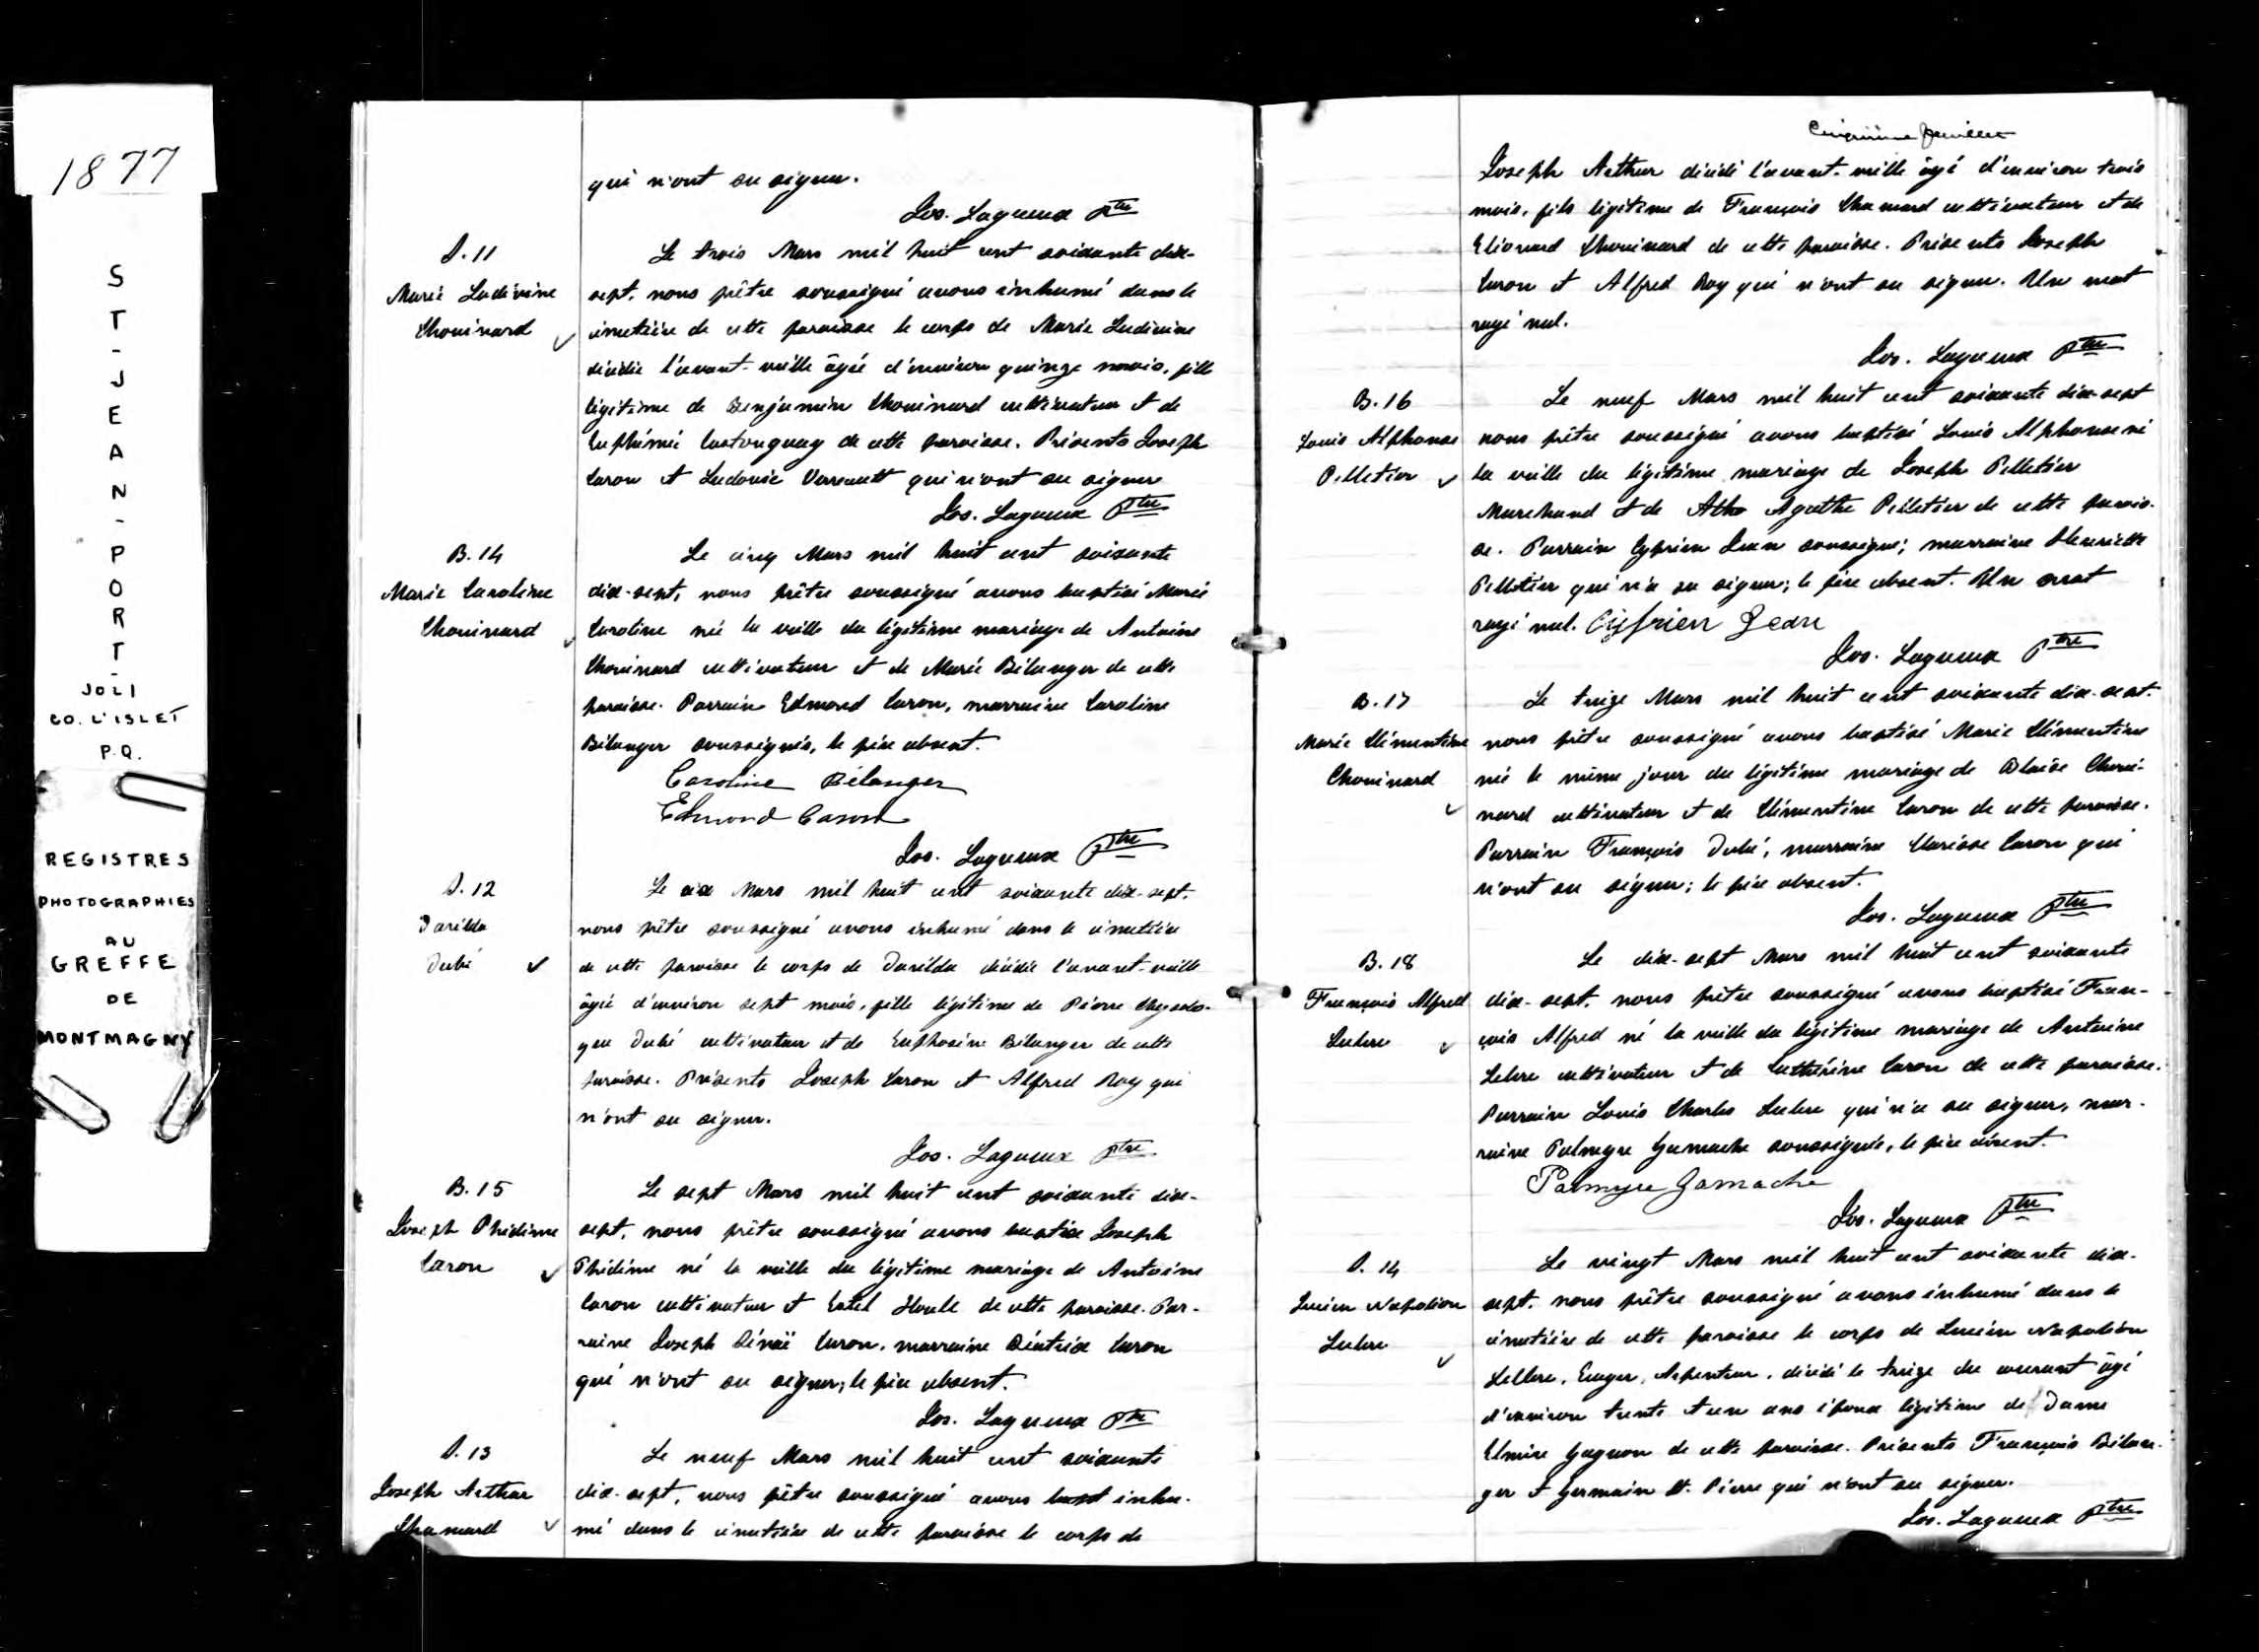 1877
ST-JEAN-PORT-
JOLI
CO. L'ISLET
P.Q.
REGISTRES
PHOTOGRAPHIES
AU
GREFFE
DE
MONTMAGNY
qui n'ont su signer.
Jos. Lagueux Ptre
S. 11
Marie Ludivine
Chouinard
Le trois Mars mil huit cent soixante dix-
sept, nous prêtre soussigné avons inhumé dans le
cimetière de cette paroisse le corps de Marie Ludivine
décédée l'avant-veille âgée d'environ quinze mois, fille
légitime de Benjamin Chouinard cultivateur et de
Euphémie Castonguay de cette paroisse. Présents Joseph
Caron et Ludovic Verreault qui n'ont su signer
Jos. Lagueux Ptre
B. 14
Marie Caroline
Chouinard
Le cinq Mars mil huit cent soixante
dix-sept, nous prêtre soussigné avons baptisé Marie
Caroline née la veille du légitime mariage de Antoine
Chouinard cultivateur et de Marie Bélanger de cette
paroisse. Parrain Edmond Caron, marraine Caroline
Bélanger soussignés, le père absent.
Caroline Bélanger
Edmond Caron
Jos. Lagueux Ptre
S. 12
Darilda
Dubé
Le six Mars mil huit cent soixante dix-sept,
nous prêtre soussigné avons inhumé dans le cimetière
de cette paroisse le corps de Darilda décédée l'avant-veille
âgée d'environ sept mois, fille légitime de Pierre Chrysolo-
gue Dubé cultivateur et de Euphosine Bélanger de cette
paroisse. Présents Joseph Caron et Alfred Roy qui
n'ont su signer.
Jos. Lagueux Ptre
B. 15
Joseph Phidime
Caron
Le sept Mars mil huit cent soixante dix-
sept, nous prêtre soussigné avons baptisé Joseph
Phidime né la veille du légitime mariage de Antoine
Caron cultivateur et de cette paroisse. Par-
raine Joseph Caron, marraine Béatrix Caron
qui n'ont su signer, le père absent.
Jos. Lagueux Ptre
S. 13
Joseph Arthur
Chamard
Le neuf Mars mil huit cent soixante
dix-sept, nous prêtre soussigné avons bapt inhu-
mé dans le cimetière de cette paroisse le corps de
Cinquième feuillet
Joseph Arthur décédé l'avant-veille âgé d'environ trois
mois, fils légitime de François Chamard cultivateur et de
Chouinard de cette paroisse. Présents Joseph
Caron et Alfred Roy qui n'ont su signer. Un mot
rayé nul.
Jos. Lagueux Ptre
B. 16
Louis Alphonse
Pelletier
Le neuf Mars mil huit cent soixante dix-sept
nous prêtre soussigné avons baptisé Louis Alphonse né
la veille du légitime mariage de Joseph Pelletier
Marchand et de Agathe Pelletier de cette parois-
se. Parrain Cyprien Jean soussigné; marraine Henriette
Pelletier qui n'a su signer; le père absent. Un mot
rayé nul. Cyprien Jean
Jos. Lagueux Ptre
B. 17
Marie Clémentine
Chouinard
Le treize Mars mil huit cent soixante dix-sept
nous prêtre soussigné avons baptisé Marie Clémentine
née le même jour du légitime mariage de Blaise Choui-
nard cultivateur et de Clémentine Caron de cette paroisse.
Parrain François Dubé, marraine Clarisse Caron qui
n'ont su signer; le père absent.
Jos. Lagueux Ptre
B. 18
François Alfred
Leclerc
Le dix-sept Mars mil huit cent soixante
dix-sept, nous prêtre soussigné avons baptisé Fran-
çois Alfred né la veille du légitime mariage de Antoine
Leclerc cultivateur et de Cathérine Caron de cette paroisse.
Parrain Louis Charles Leclerc qui n'a su signer, mar-
raine Palmyre Gamache soussignée, le père absent.
Palmyre Gamache
Jos. Lagueux Ptre
S. 14
Lucien Napoléon
Leclerc
Le vingt Mars mil huit cent soixante dix-
sept, nous prêtre soussigné avons inhumé dans le
cimetière de cette paroisse le corps de Lucien Napoléon
Leclerc, Ecuyer, Arpenteur, décédé le treize du courant âgé
d'environ trente et un ans époux légitime de Dame
Elmire Gagnon de cette paroisse. Présents François Bélan-
ger et Germain St. Pierre qui n'ont su signer.
Jos. Lagueux Ptre